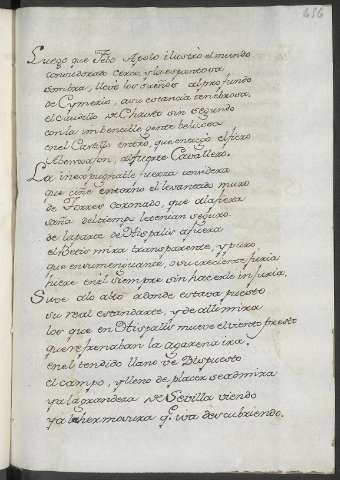 456
Luego que Febo Apolo ilustró el mundo
considerado cerca, y la espantosa
sombra, llevó los sueños al profundo
de Cymerio, a su estancia tenebrosa,
el Caudillo de Christo sin segundo
con la imbencible gente belicosa
en el Castillo entró, que enagenó el fiero
Abenmafon, al fuerte Cavallero.
La inexpugnable fuerza considera
que ciñe entorno el levantado muro
de Torres coronado, que a la fiera
saña del tiempo le tenian seguro.
de la parte de Hispalis afuera
el Betis mira transparente, y puro,
que en su menguante, o su creciente furia
fuere en el siempre sin hacerle injuria,
Suve a lo alto adonde estava puesto
su real estandarte, y de alli mira
los que en Hispalis mueve el viento presto
que refrenaban la agarena ira.
en el tendido llano ve dispuesto
el campo, y lleno de placer se admira
ya la grandeza de Sevilla viendo
ya la hermosura q.e iva descubriendo.